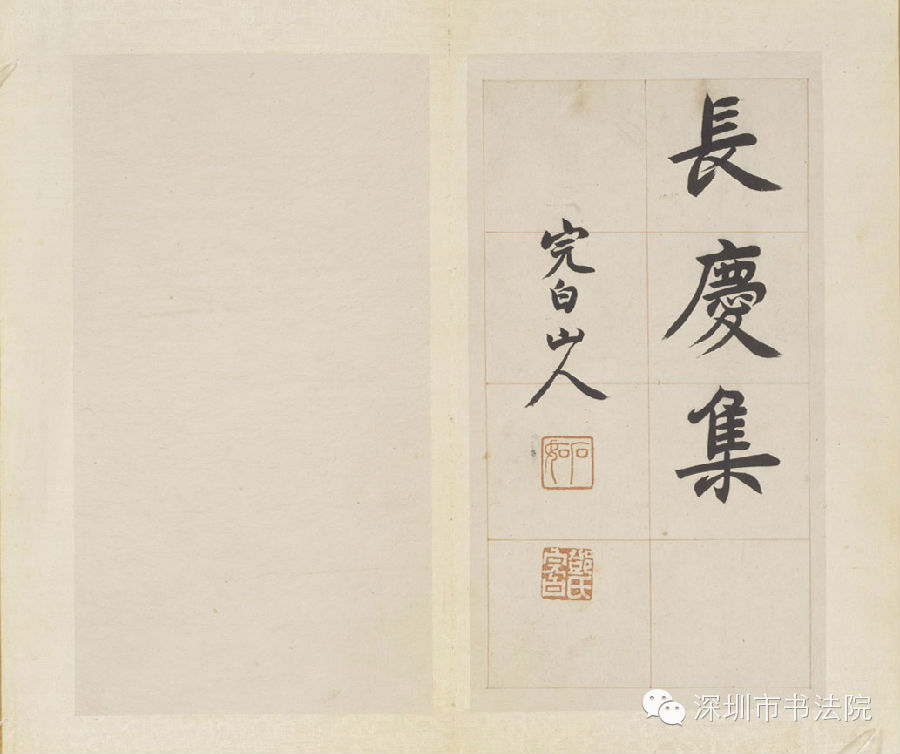 長慶集
完白山人
石如
鄧氏完白
深圳市书法院